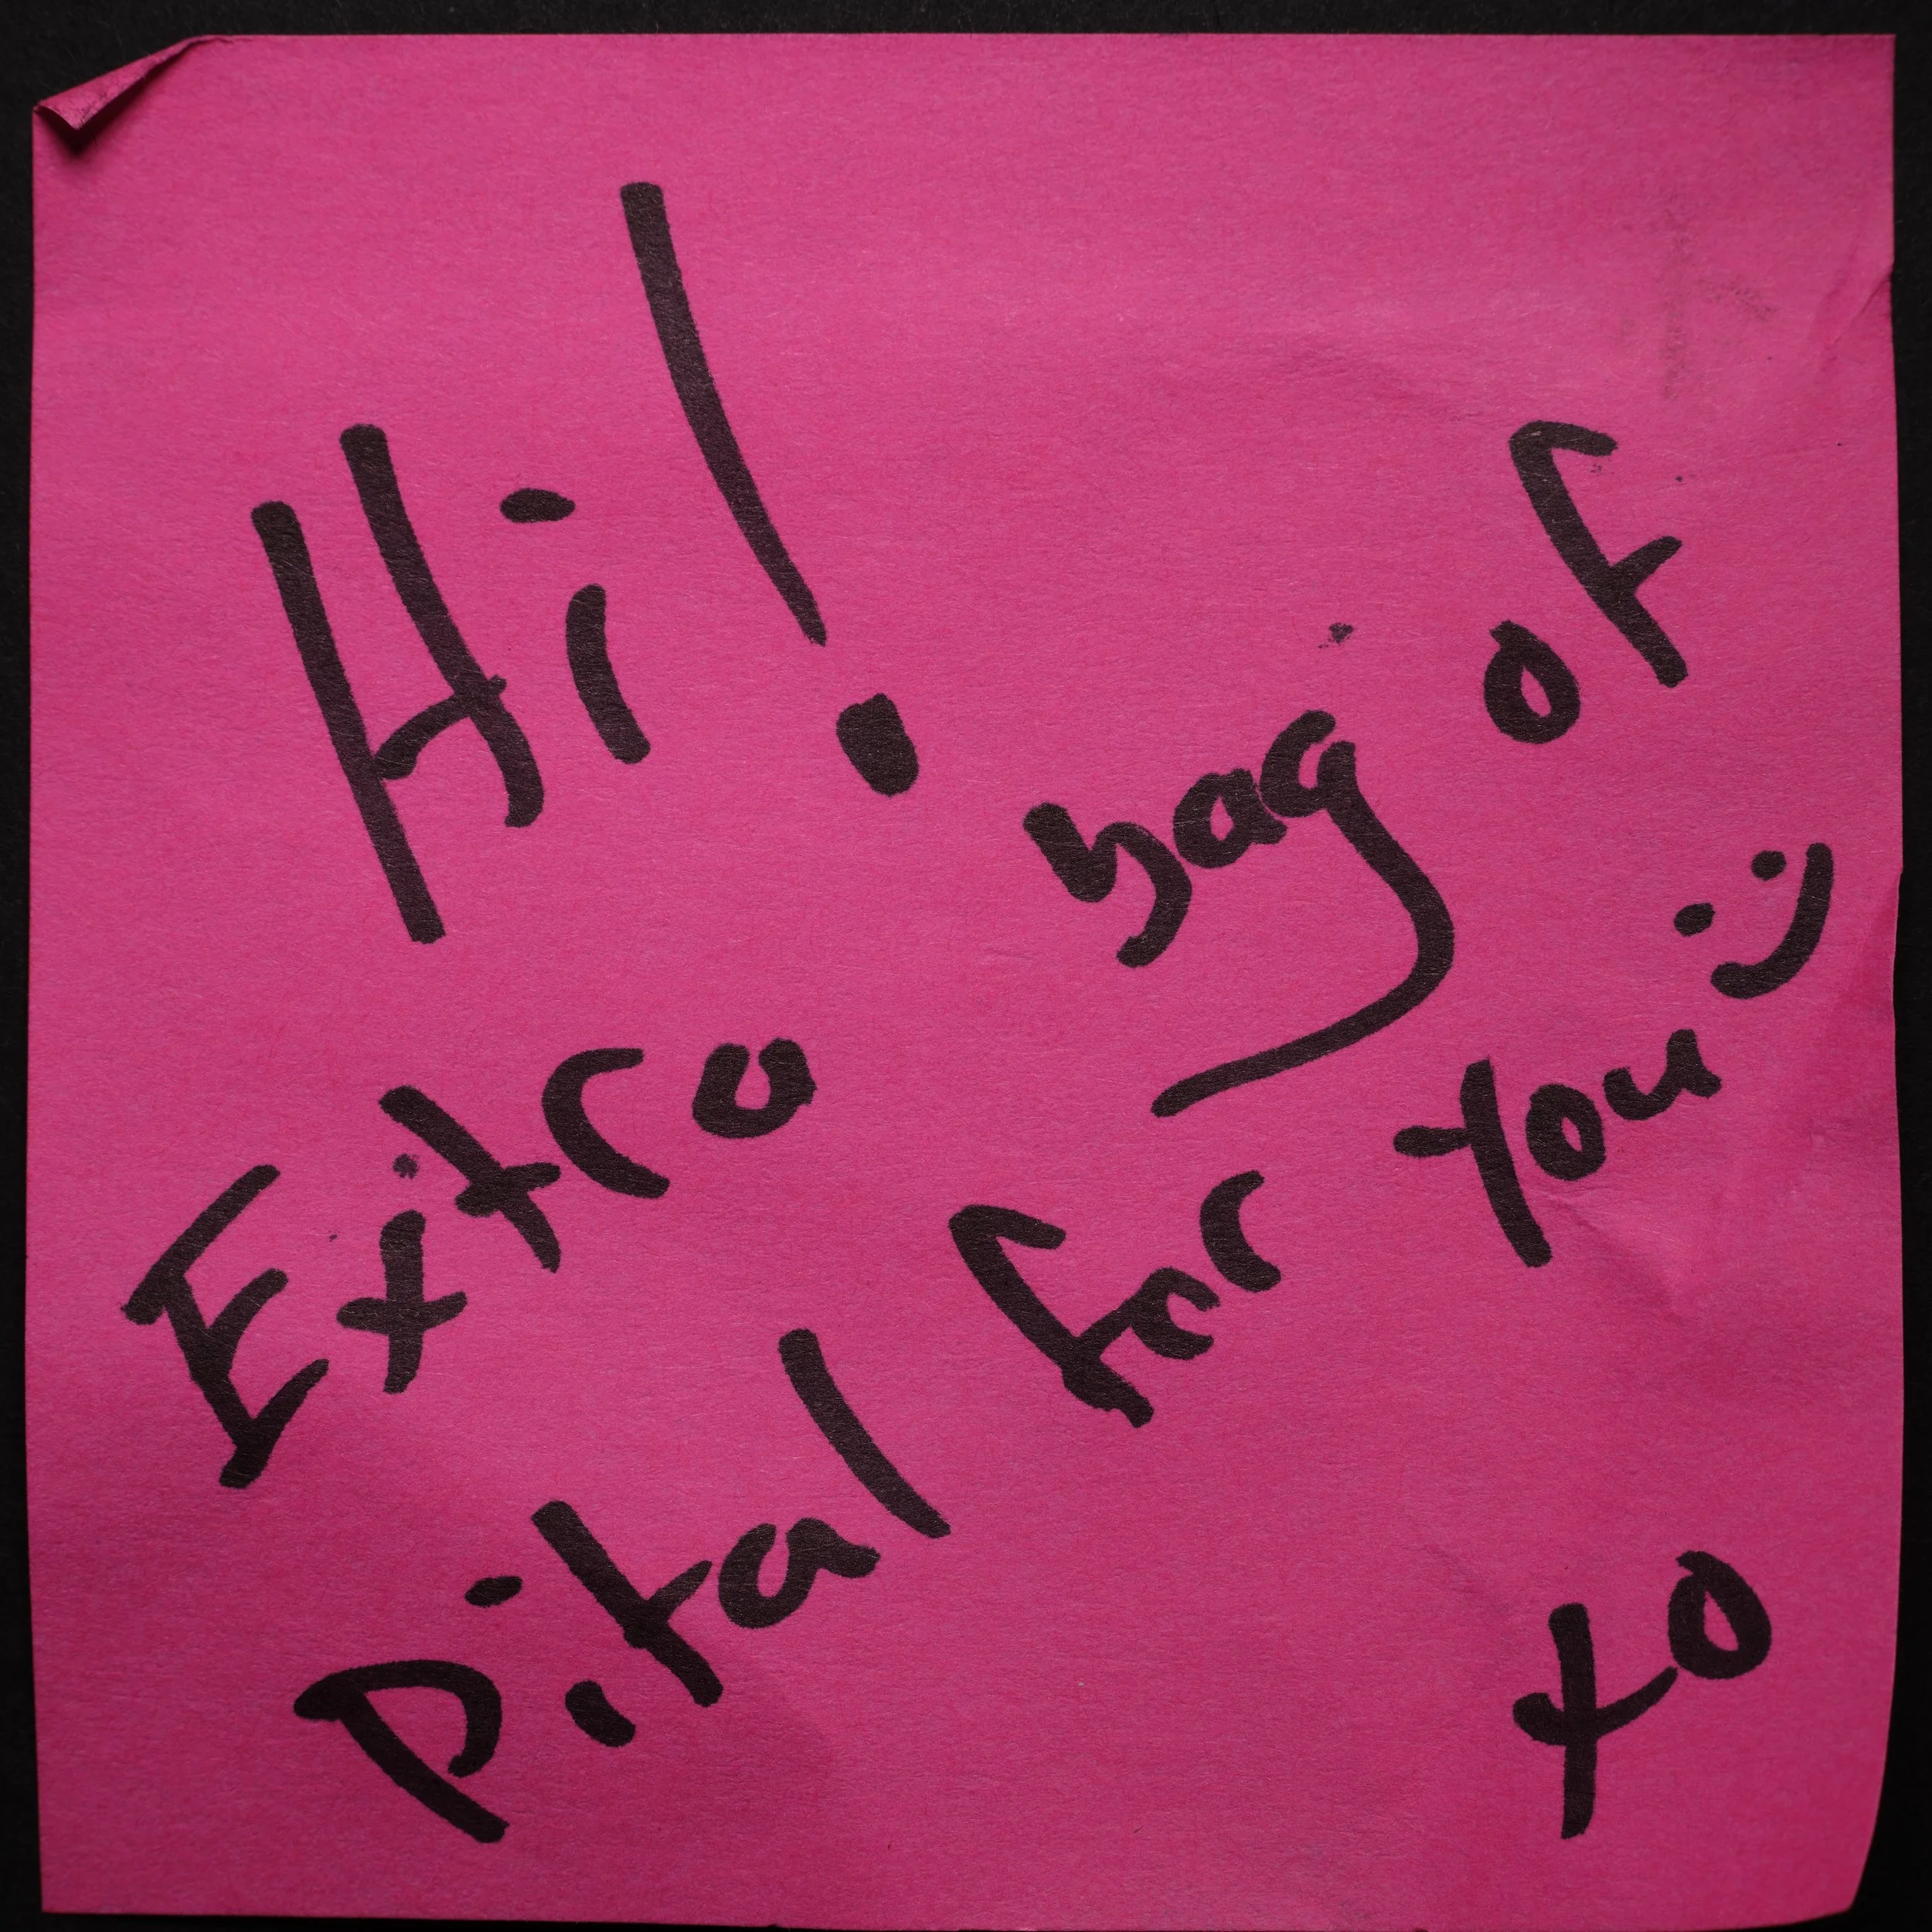 Hi!
Extra bag of
Pital for you :)
xo